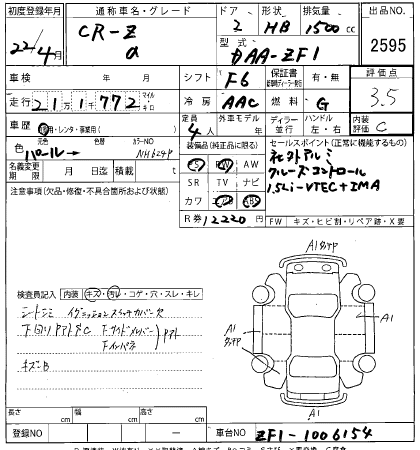 初度登録年月 通称車名・グレード ドア 形状 排気量 出品NO.
22/4月 CR-Z α 2 HB 1500 cc 2595
型式 DAA-ZF1
車検 年 月 シフト F6 保証書 有・無 評価点 3.5
走行 21万1千772 マイル キロ 冷房 AAC 燃料 G 内装評価 C
車歴 自家用・レンタ・事業用( ) 定員 4人 外車モデル 年 ディーラー 並行 ハンドル 左・右
元色 色替 カラーNO
色 パール NH624P
装備品(純正品に限る) セールスポイント(正常に機能するもの)
名義変更期限 月 日 迄 積載 t
PS PW AW
SR TV ナビ
カワ エアB ABS
社外アルミ
クルーズコントロール
1.5Li-VTEC+IMA
注意事項(欠品・修復・不具合箇所および状態)
R券 12220円 FW キズ・ヒビ割・リペア跡・X要
検査員記入 内装 キズ・汚レ・コゲ・穴・スレ・キレ
シートシミ イグニッションスイッチカバー欠
下回りサビC
キズB
A1
A1
A1
A1
長さ cm 幅 cm 高さ cm
登録NO ー 車台NO ZF1-1006154